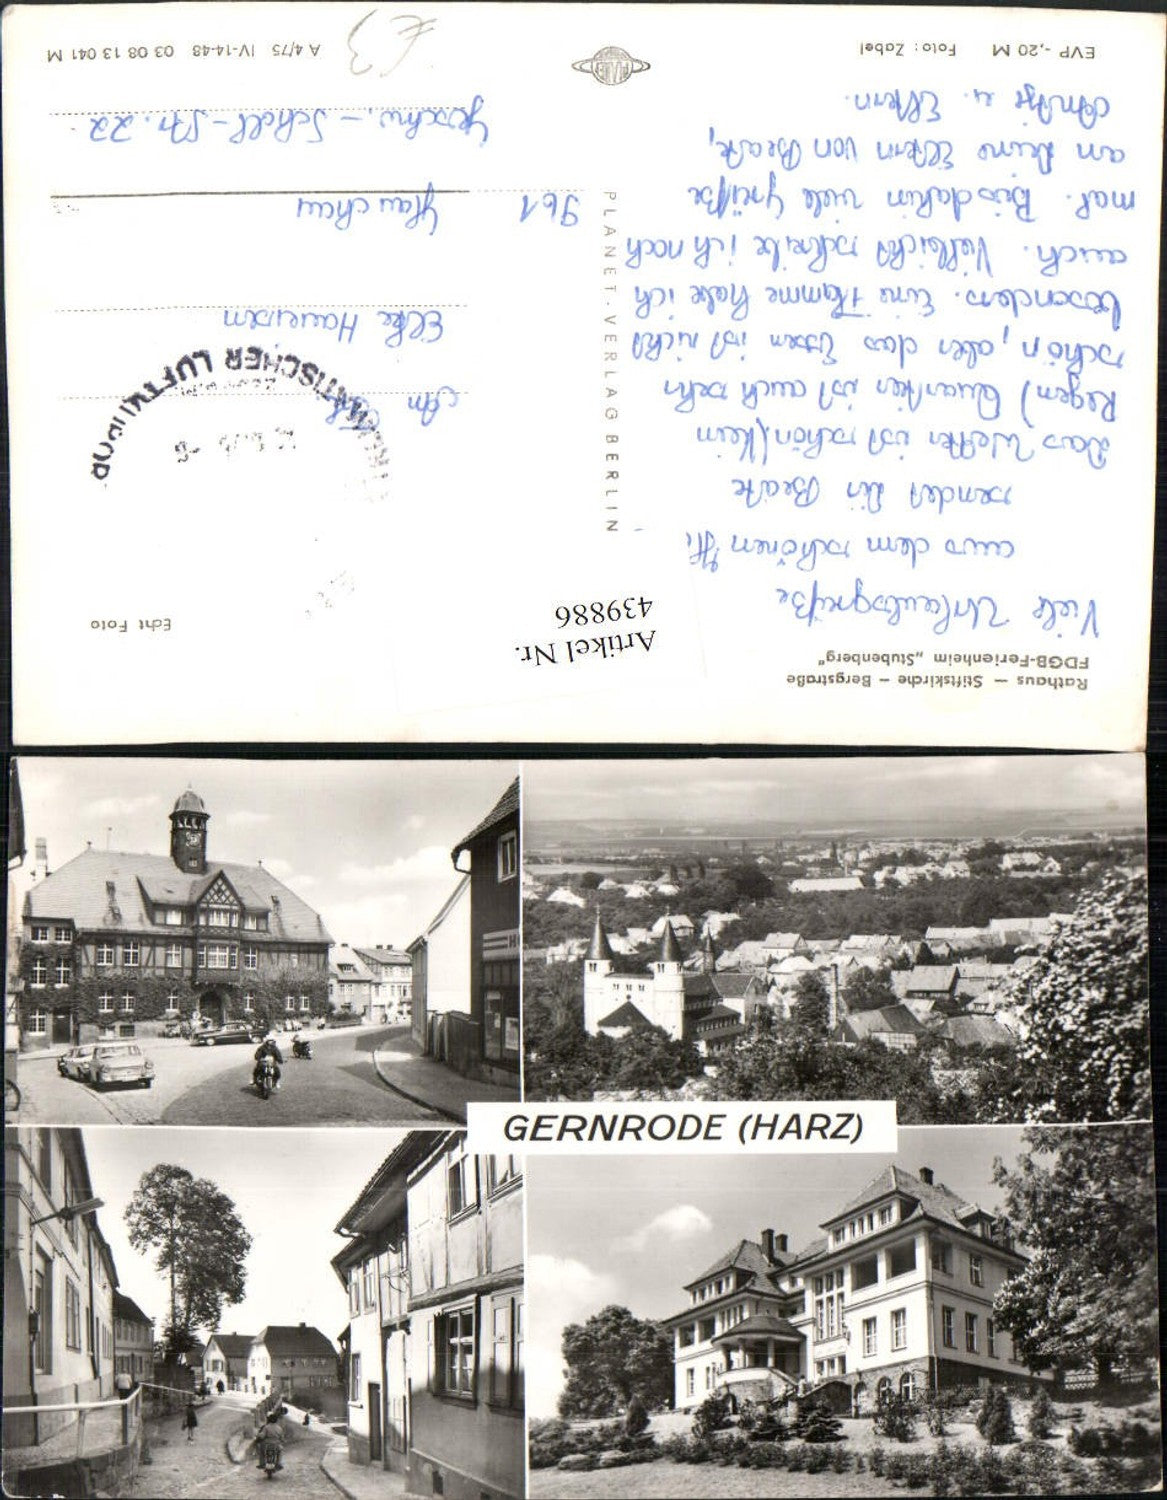 Rathaus — Stiftskirche — Bergstraße
FDGB-Ferienheim „Stubenberg"
Viele Urlaubsgrüße
aus dem schönen
sendet dir Beate
Das Wetter ist schön (kein
Regen) Quartier ist auch sehr
schön, aber das Essen ist nicht
besonders. Eine Flamme habe ich
auch. Vielleicht schreibe ich noch
mal. Bis dahin viele Grüße
an deine Eltern von Beate,
Antje u. Eltern.
EVP -,20 M Foto: Zabel
PLANET-VERLAG BERLIN
PLANET
Artikel Nr.
439886
Echt Foto
ER LUFTKUROR
An
Elke
961 Glauchau
Geschw.-Scholl-Str. 22
A 4/75 IV-14-48 03 08 13 041 M
€3
GERNRODE (HARZ)